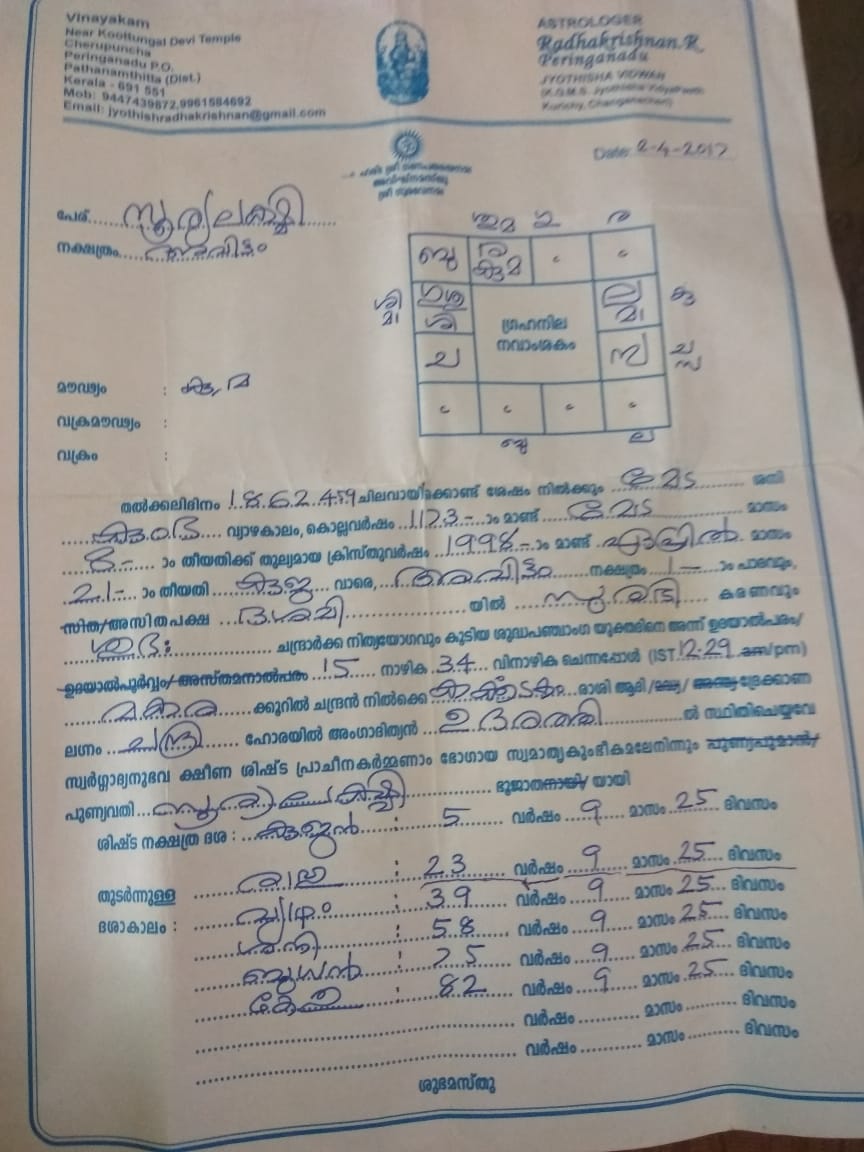 Vinayakam
Near Koottungal Devi Temple
Cherupuncha
Peringanadu P.O.
Pathanamthitta (Dist.)
Kerala - 691 551
Mob: 9447439872,9961584692
Email: jyothishradhakrishnan@gmail.com
ASTROLOGER
Radhakrishnan.R
Peringanadu
JYOTHISHA VIDWAN
Date: 2-4-2017
പേര് സൂര്യലക്ഷ്മി
നക്ഷത്രം അവിട്ടം
ഗ്രഹനില
നവാംശകം
മൗഢ്യം : കു, മ
വക്രമൗഢ്യം :
വക്രം :
തൽക്കലിദിനം 1862459 ചിലവായിക്കൊണ്ട് ശേഷം നിൽക്കും മേട ശനി
കുംഭ വ്യാഴകാലം, കൊല്ലവർഷം 1173 -ാം മാണ്ട് മേട മാസം
8 - ാം തീയതിക്ക് തുല്യമായ ക്രിസ്തുവർഷം 1998 -ാം മാണ്ട് ഏപ്രിൽ മാസം
21 - ാം തീയതി കുജ വാരെ, അവിട്ടം നക്ഷത്രം 1 -ാം പാദവും,
സിത/അസിതപക്ഷ ദശമി യിൽ സുരഭി കരണവും
ശുഭ: ചന്ദ്രാർക്ക നിത്യയോഗവും കൂടിയ ശുദ്ധപഞ്ചാംഗ യുക്തദിനെ അന്ന് ഉദയാൽപരം/
ഉദയാൽപൂർവ്വം/അസ്തമനാൽപരം 15 നാഴിക 34 വിനാഴിക ചെന്നപ്പോൾ (IST 12-29 am/pm)
മകര ക്കൂറിൽ ചന്ദ്രൻ നിൽക്കെ കർക്കിടകം രാശി ആദി/മദ്ധ്യ/അന്ത്യ ദ്രേക്കാണ
ലഗ്നം ചന്ദ്ര ഹോരയിൽ അംഗാദിത്യൻ ഉദരത്തി ൽ സ്ഥിതിചെയ്യവേ
സ്വർഗ്ഗാദ്യനുഭവ ക്ഷീണ ശിഷ്ട പ്രാചീനകർമ്മണാം ഭോഗായ സ്വമാതൃകുംഭീകമലേനിന്നും പുണ്യപുമാൻ/
പുണ്യവതി സൂര്യലക്ഷ്മി ഭൂജാതനായി/യായി
ശിഷ്ട നക്ഷത്ര ദശ : കുജൻ : 5 വർഷം 9 മാസം 25 ദിവസം
തുടർന്നുള്ള രാഹു : 23 വർഷം 9 മാസം 25 ദിവസം
ദശാകാലം : വ്യാഴം : 39 വർഷം 9 മാസം 25 ദിവസം
ശനി : 58 വർഷം 9 മാസം 25 ദിവസം
ബുധൻ : 75 വർഷം 9 മാസം 25 ദിവസം
കേതു : 82 വർഷം 9 മാസം 25 ദിവസം
വർഷം മാസം ദിവസം
വർഷം മാസം ദിവസം
ശുഭമസ്തു